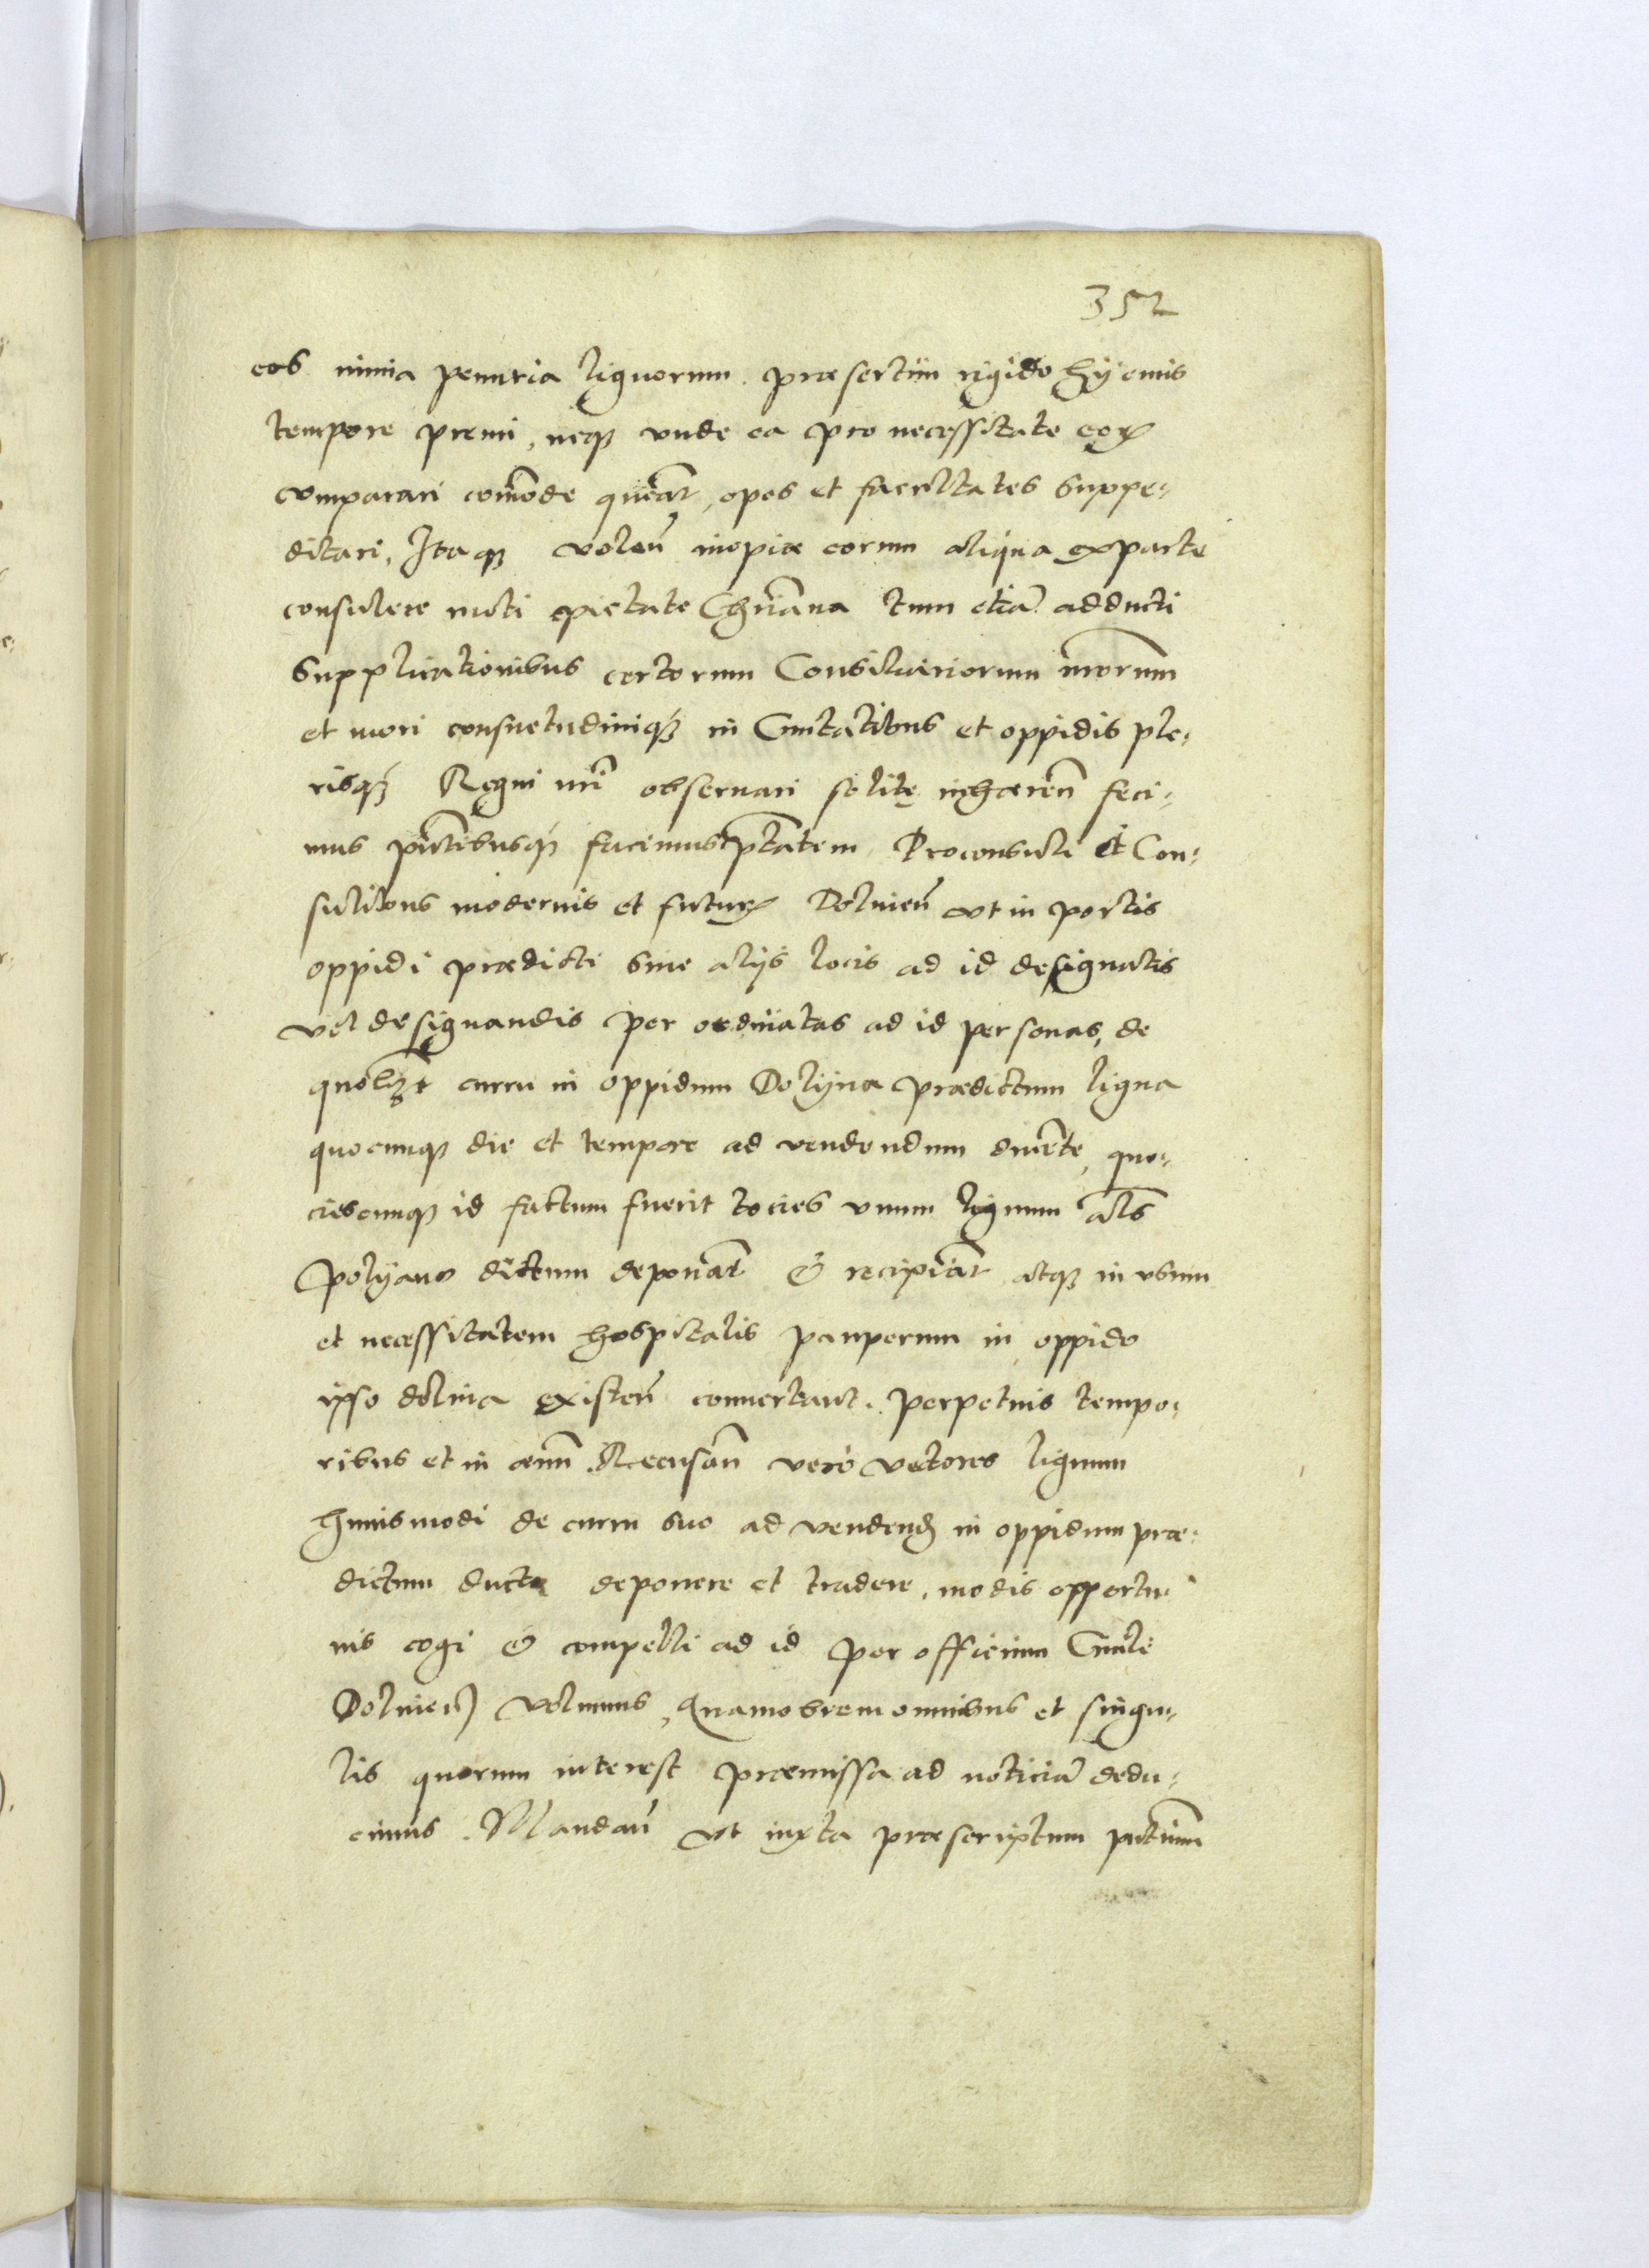 352
eos nimia penuria lignorum præsertim rigido hÿemis
tempore premi, neqȝ vnde ea pro necessitate eoꝝ
comparari com̃ode queãt, opes et facultates suppe-
ditari, Itaqȝ voleñ inopiæ eorum aliqua exparte
consulere moti pietate Chr̃iana tum etiã adducti
supplicationibus certorum Consiliariorum nr̃orum
et mori consuetudiniqȝ in Ciuitatibus et oppidis ple-
risqȝ Regni nr̃i obseruari solitę inhæreñ feci-
mus pñtibusqȝ facimus ptãtem Proconsuli et Con-
sulibus modernis et futuꝝ Dolineñ vt in portis
oppidi prædicti siue alijs locis ad id designatis
vel designandis per ordinatas ad id personas, de
quolibȝt curru in oppidum Dolÿna prædictum ligna
quocunqȝ die et tempore ad vendendum ducẽte, quo-
ciescunqȝ id factum fuerit tocies vnum lignum al̃s
Polÿano dictum deponãt & recipiãt atqȝ in vsum
et necessitatem hospitalis pauperum in oppido
ipso dolina existeñ conuertant. perpetuis tempo-
ribus et in æuũ. Recusañ vero vectores lignum
huiusmodi de curru suo ad vendenđ in oppidum præ-
dictum ducta deponere et tradere, modis opportu-
nis cogi & compelli ad id per officium Ciuile
Dolineñ volumus, Quamobrem omnibus et singu-
lis quorum interest præmissa ad noticiã dedu-
cimus. Mandañ vt iuxta præscriptum pñtium